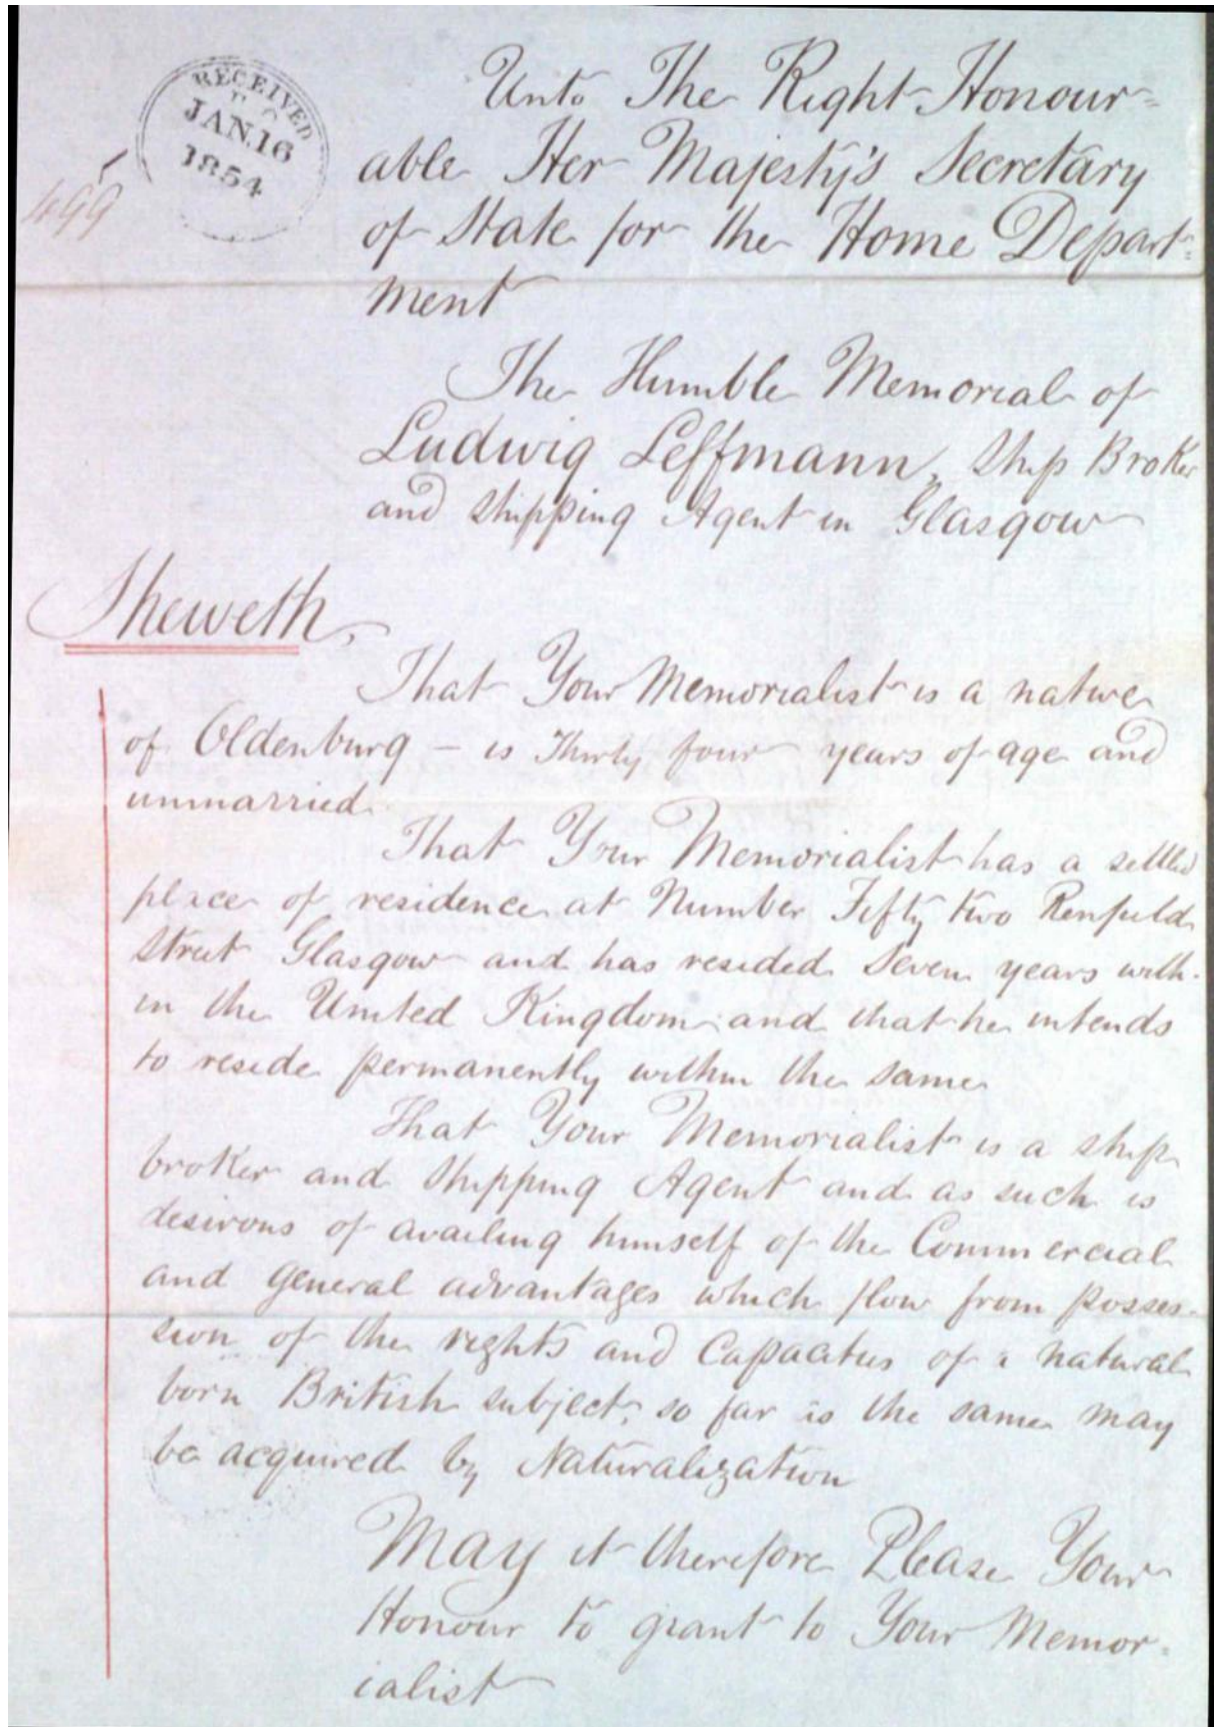 RECEIVED
JAN.16
1854
499
Unto The Right Honour=
able Her Majesty's Secretary
of State for the Home Depart=
ment
The Humble Memorial of
Ludwig Leffmann, Ship Broker
and Shipping Agent in Glasgow
Sheweth,
That Your Memorialist is a native
of Oldenburg – is Thirty four years of age and
unmarried.
That Your Memorialist has a settled
place of residence at Number Fifty two Renfield
Street Glasgow and has resided Seven years with-
in the United Kingdom and that he intends
to reside permanently within the same
That Your Memorialist is a ship
broker and Shipping Agent and as such is
desirous of availing himself of the Commercial
and General advantages which flow from posses-
sion of the rights and Capacities of a natural
born British subject, so far as the same may
be acquired by Naturalization
May it therefore Please Your
Honour to grant to Your Memor-
ialist